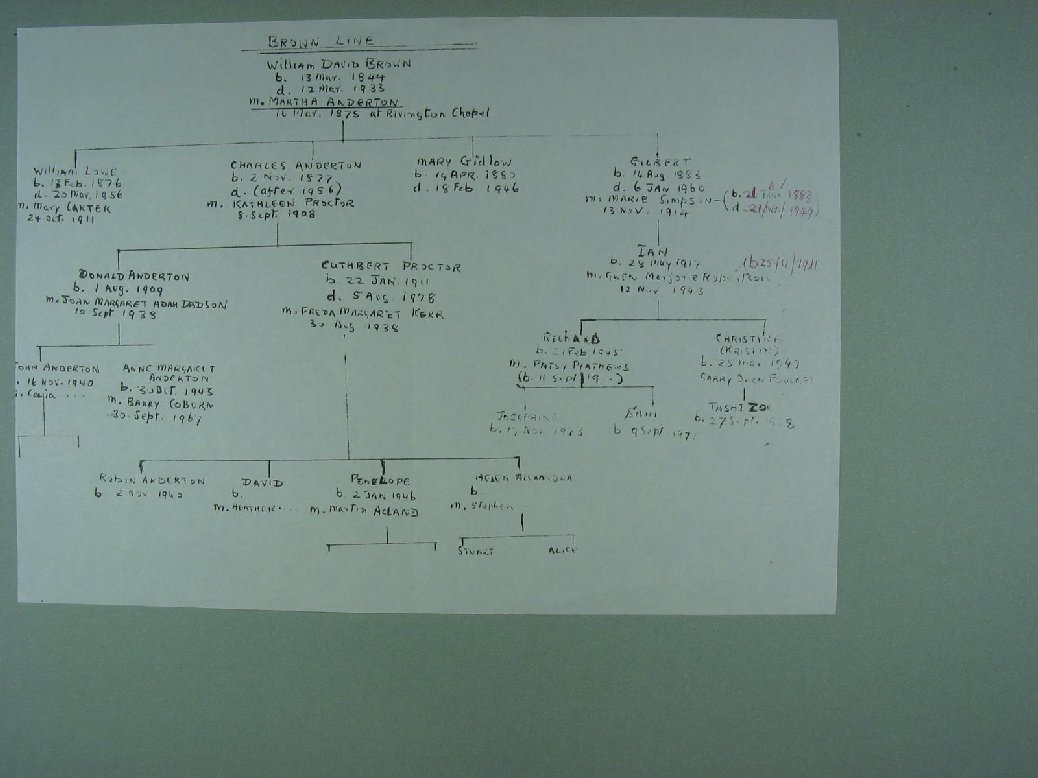 BROWN LINE
William DAVID BROWN
b. 13 Mar. 1844
d. 12 Mar. 1933
m. MARTHA ANDERTON
16 Mar. 1875 at Rivington Chapel
William LOWE
b. 13 Feb. 1876
d. 20 Mar. 1956
m. Mary CARTER
24 Oct. 1911
CHARLES ANDERTON
b. 2 Nov. 1877
d. (after 1956)
m. KATHLEEN PROCTOR
8. Sept. 1908
MARY Gidlow
b. 14 APR. 1880
d. 18 Feb 1946
GILBERT
b. 14 Aug 1883
d. 6 JAN 1960
m. MARIE SIMPSON
13 NOV. 1914
DONALD ANDERTON
b. 1 Aug. 1909
m. JOAN MARGARET ADAH DADSON
10 Sept 1938
CUTHBERT PROCTOR
b. 22 JAN. 1911
d. 5 Aug. 1978
m. FREDA MARGARET KERR
30 Aug 1938
IAN
b. 28 May 1917
m. GWEN
12 Nov 1943
JOHN ANDERTON
16 Nov. 1940
ANNE MARGARET
ANDERTON
b. 30 Oct. 1943
m. BARRY COBURN
30. Sept. 1967
RICHARD
b. 21 Feb 1945
m. PATSY MATHEWS
CHRISTINE
b. 25 Mar 1947
JOSEPHINE
TASHI ZOE
b. 27 Sept.
ROBIN ANDERTON
b 2 Nov 1940
DAVID
b.
m. HEATHER....
PENELOPE
b. 2 JAN 1946
m. Martin ACLAND
HELEN ALEXANDRA
b.
m. Stephen
STUART ALICE